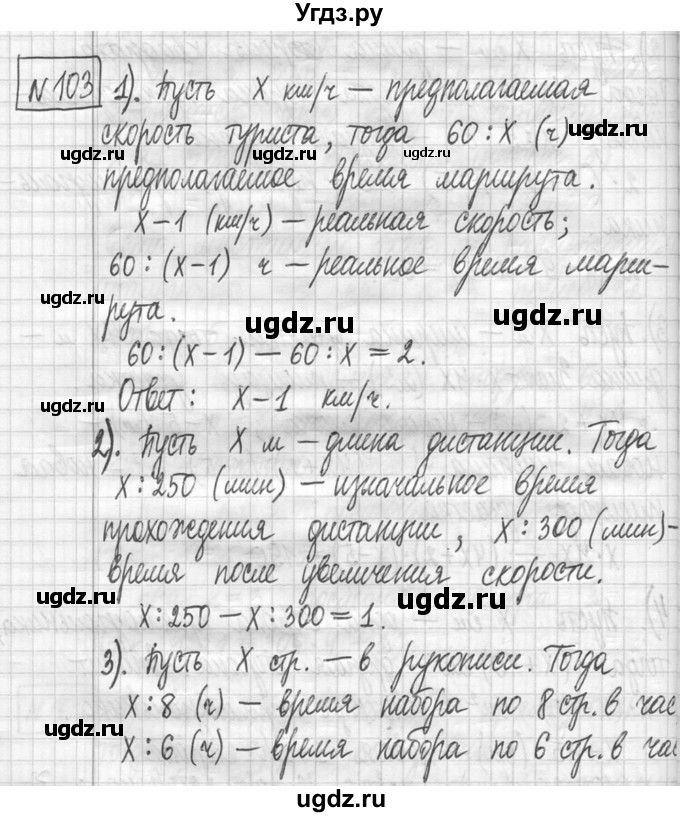 Угдз.ру
№103 1). Пусть X км/ч — предполагаемая
скорость туриста, тогда 60:X (ч)
ugdz.ru
ugdz.ru ugdz.ru ugdz.ru
предполагаемое время маршрута.
X−1 (км/ч) — реальная скорость;
60:(X−1) ч — реальное время марш-
ugdz.ru
рута.
ugdz.ru ugdz.ru
60:(X−1) — 60:X = 2.
Ответ: X−1 км/ч.
ugdz.ru ugdz.ru
2). Пусть X м — длина дистанции. Тогда
X:250 (мин) — изначальное время
прохождения дистанции, X:300 (мин)-
время после увеличения скорости.
ugdz.ru ugdz.ru
X:250 − X:300 = 1.
3). Пусть X стр. — в рукописи. Тогда
X:8 (ч) — время набора по 8 стр. в час
ugdz.ru ugdz.ru
X:6 (ч) — время набора по 6 стр. в час
ugdz.ru